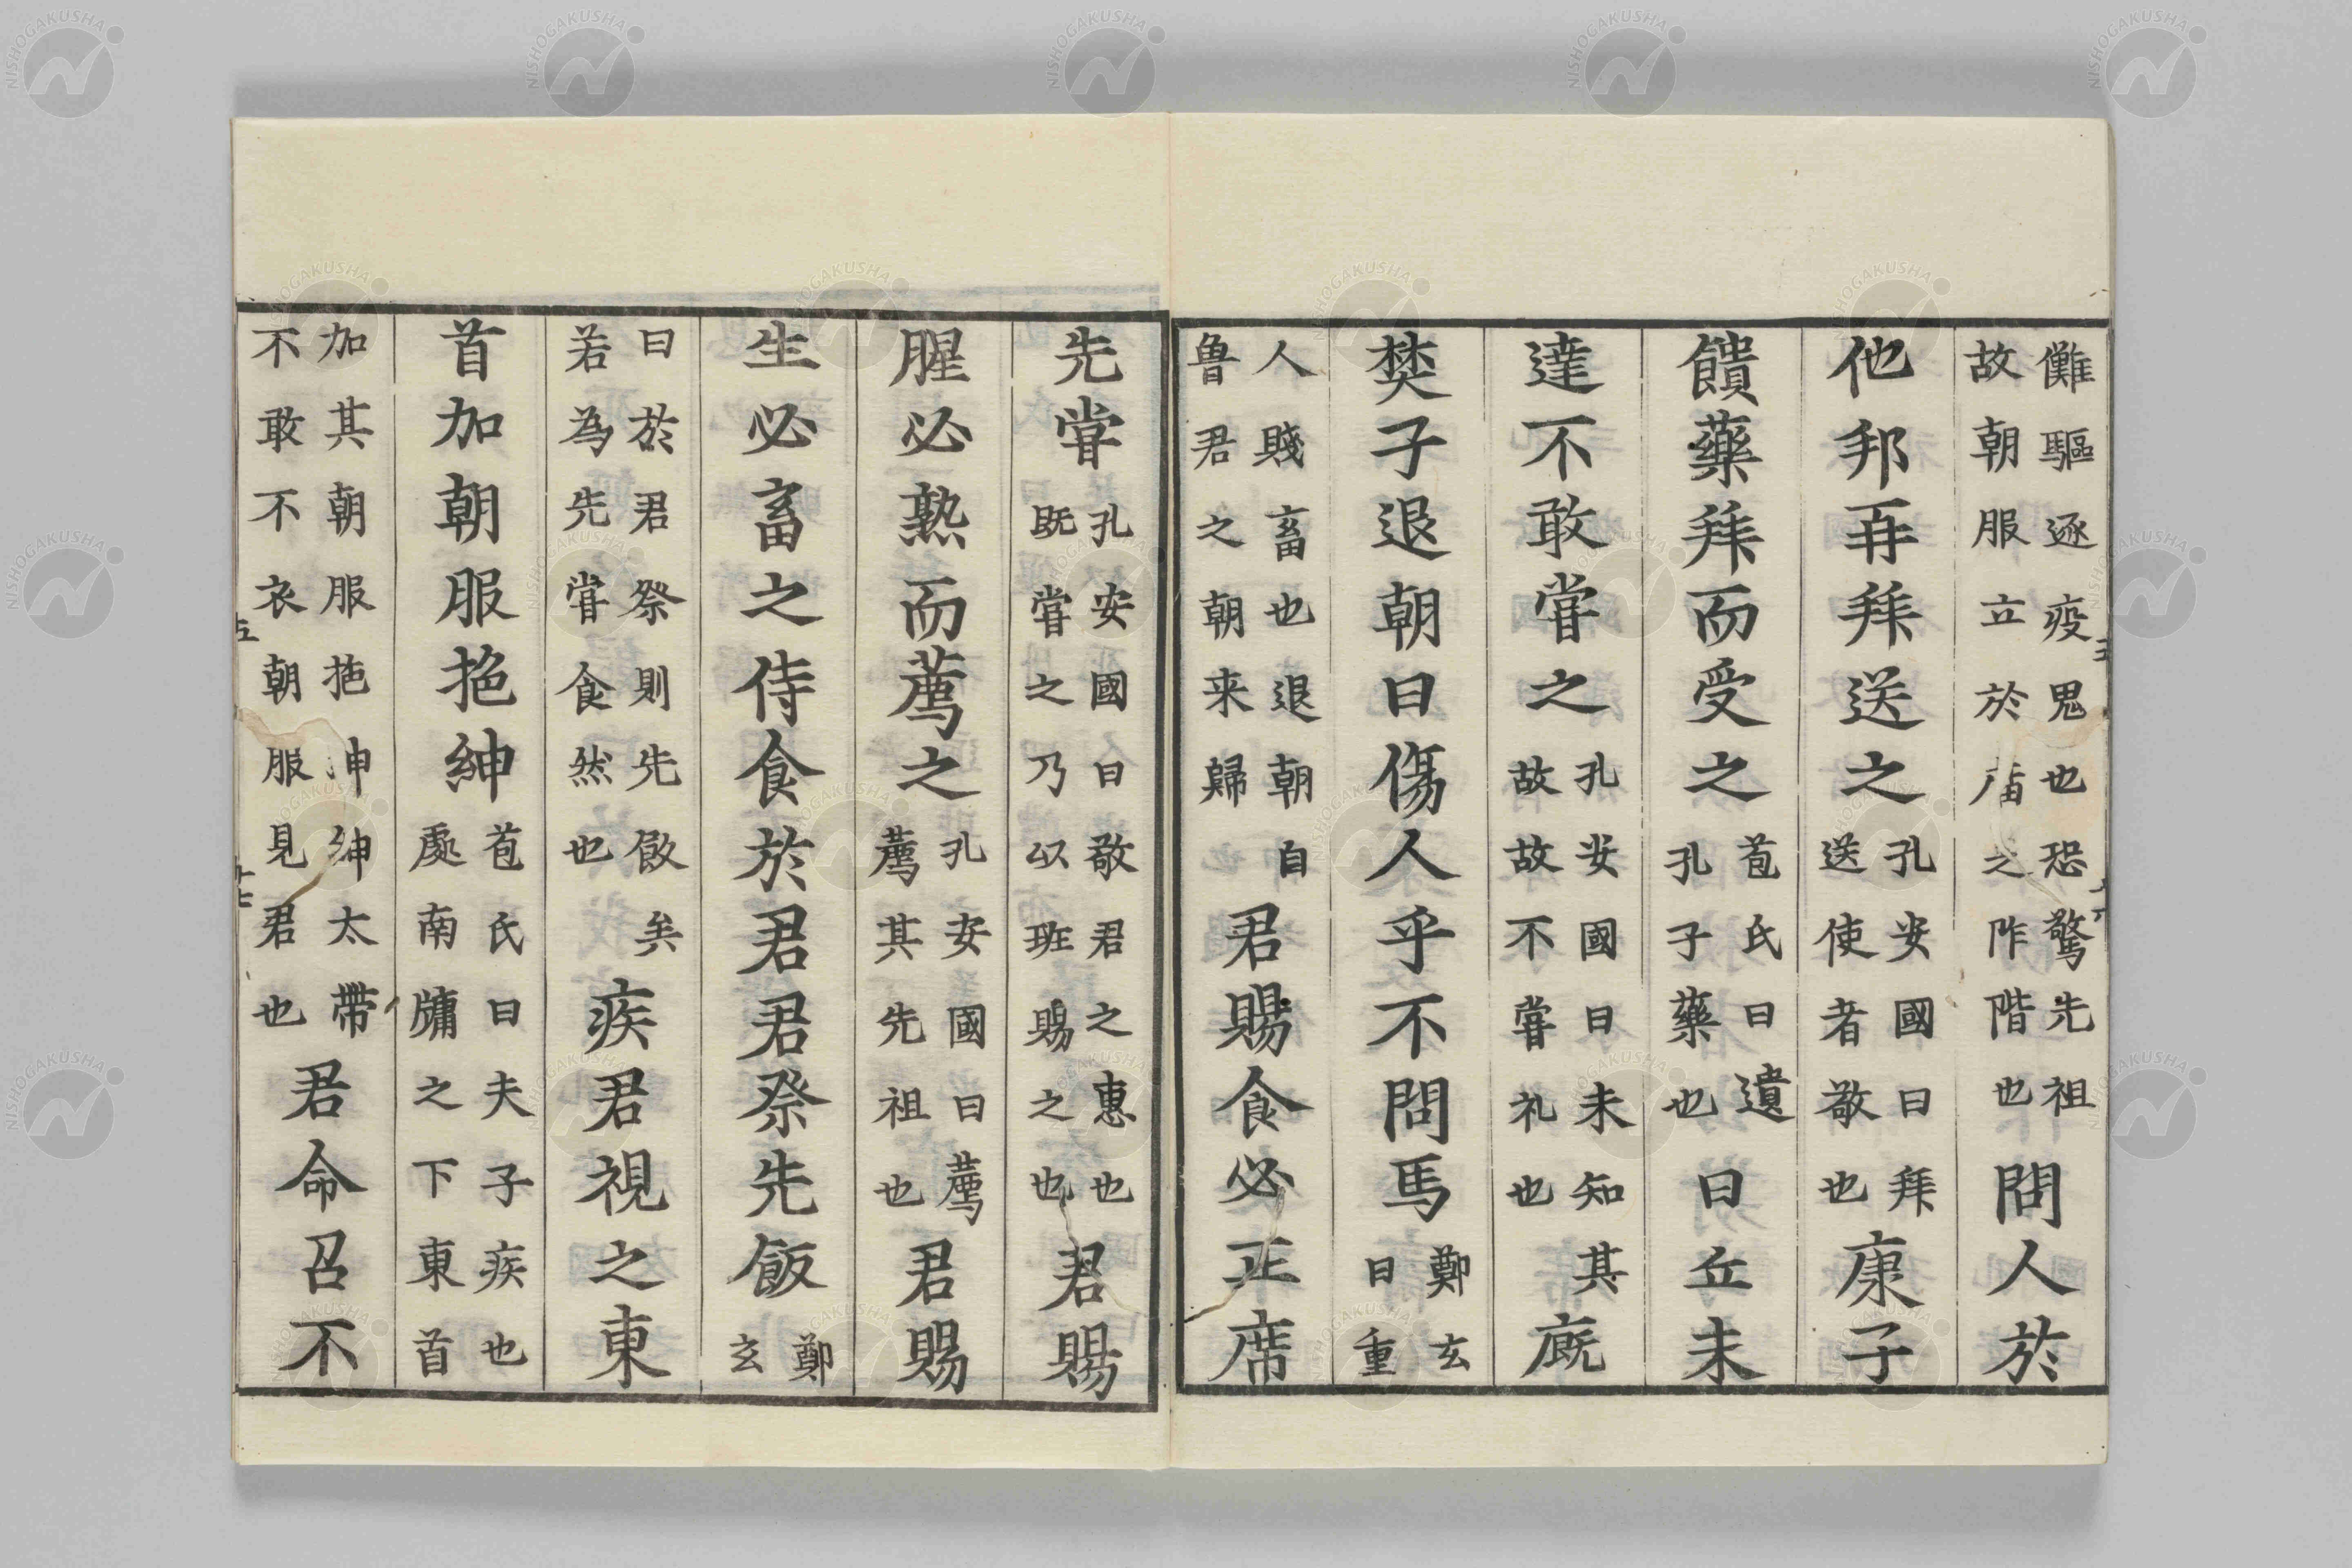 儺驅逐疫鬼也恐驚先祖
故朝服立於庿之阼階也
問人於
他邦再拜送之
孔安國曰拜
送使者敬也
康子
饋藥拜而受之
苞氏曰遺
孔子藥也
曰丘未
達不敢嘗之
孔安國曰未知其
故故不嘗礼也
廐
焚子退朝曰傷人乎不問馬
鄭玄
曰重
人賤畜也退朝自
魯君之朝来歸
君賜食必正席
先嘗
孔安國曰敬君之惠也
既嘗之乃以班賜之也
君賜
腥必熟而薦之
孔安國曰薦
薦其先祖也
君賜
生必畜之侍食於君君祭先飯
鄭
玄
曰於君祭則先飯矣
若為先嘗食然也
疾君視之東
首加朝服拖紳
苞氏曰夫子疾也
處南牖之下東首
加其朝服拖紳紳太帶
不敢不衣朝服見君也
君命召不